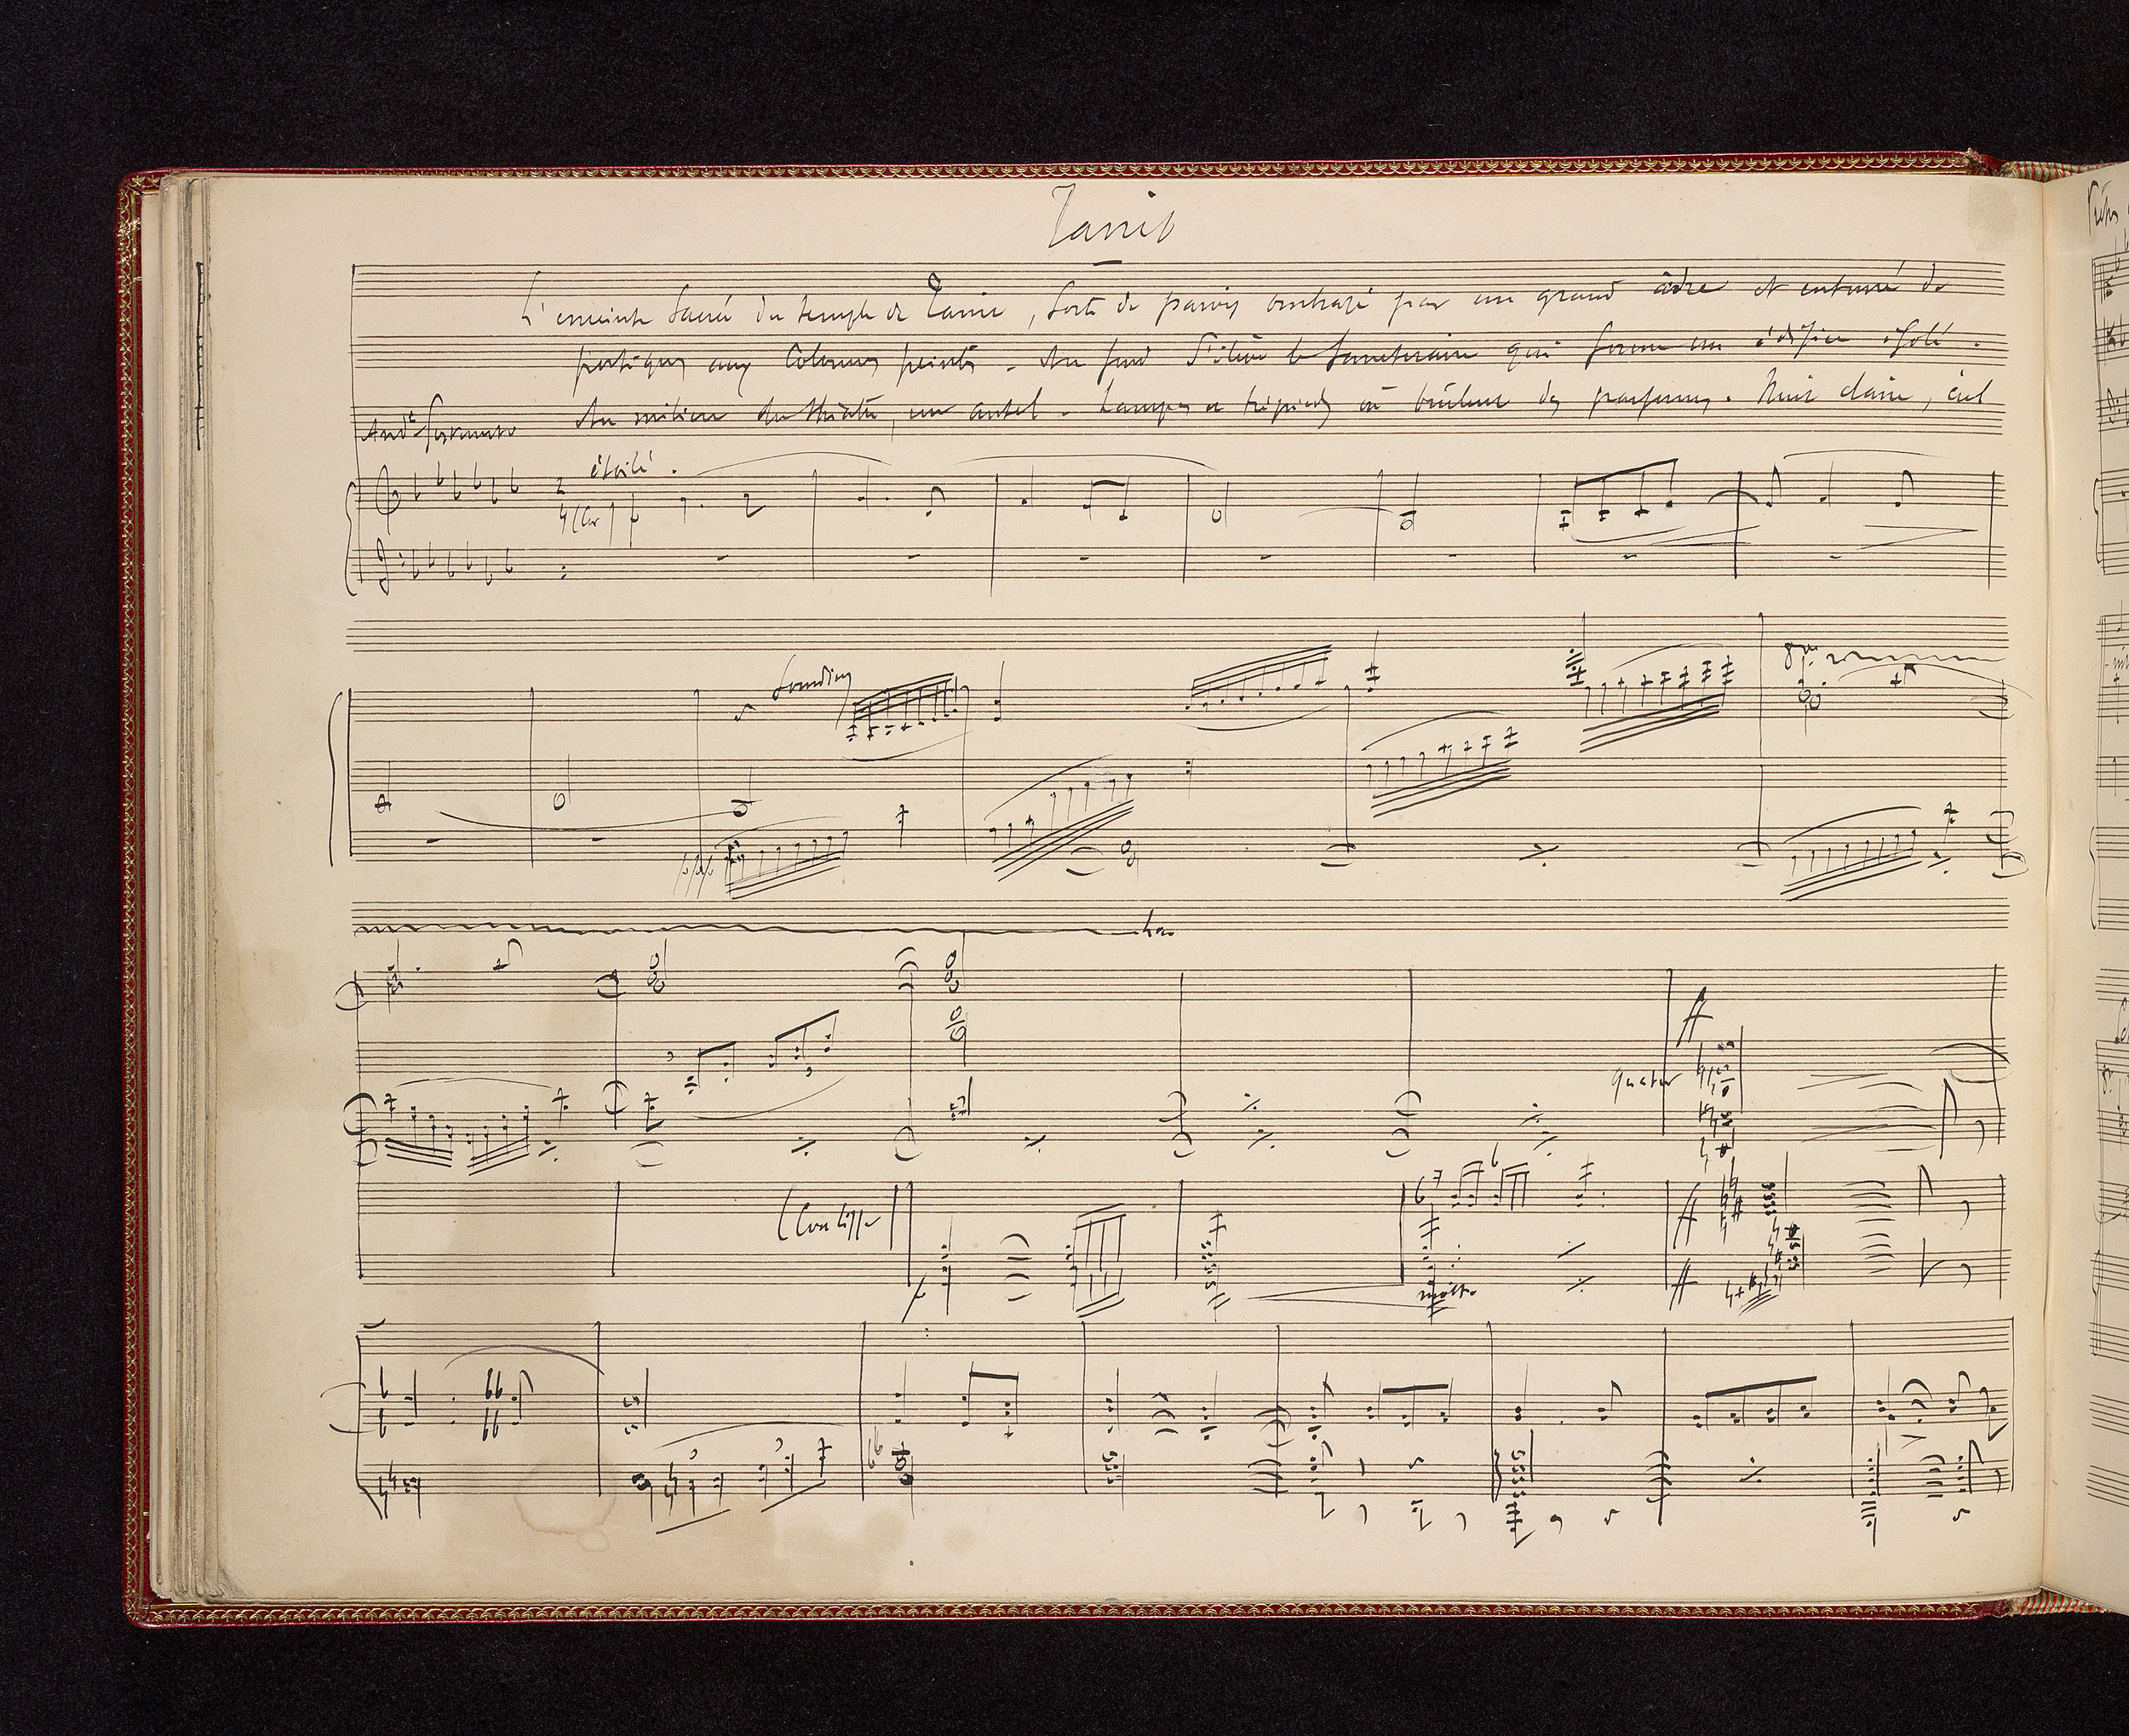 Tanit
L'enceinte sacrée du temple de Tanit, sorte de parvis ombragé par un grand cèdre et entouré de
portiques aux colonnes peintes - Au fond s'élève le sanctuaire qui forme un édifice isolé.
Au milieu du théâtre, un autel - Lampes et trépieds où brûlent des parfums. Nuit claire, ciel
And.te sostenuto
étoilé.
2
4 (Cor)
Sourdines
8va
3
3
quatuor
6
7
6
(Con
ff
ff
ff
molto
3
3